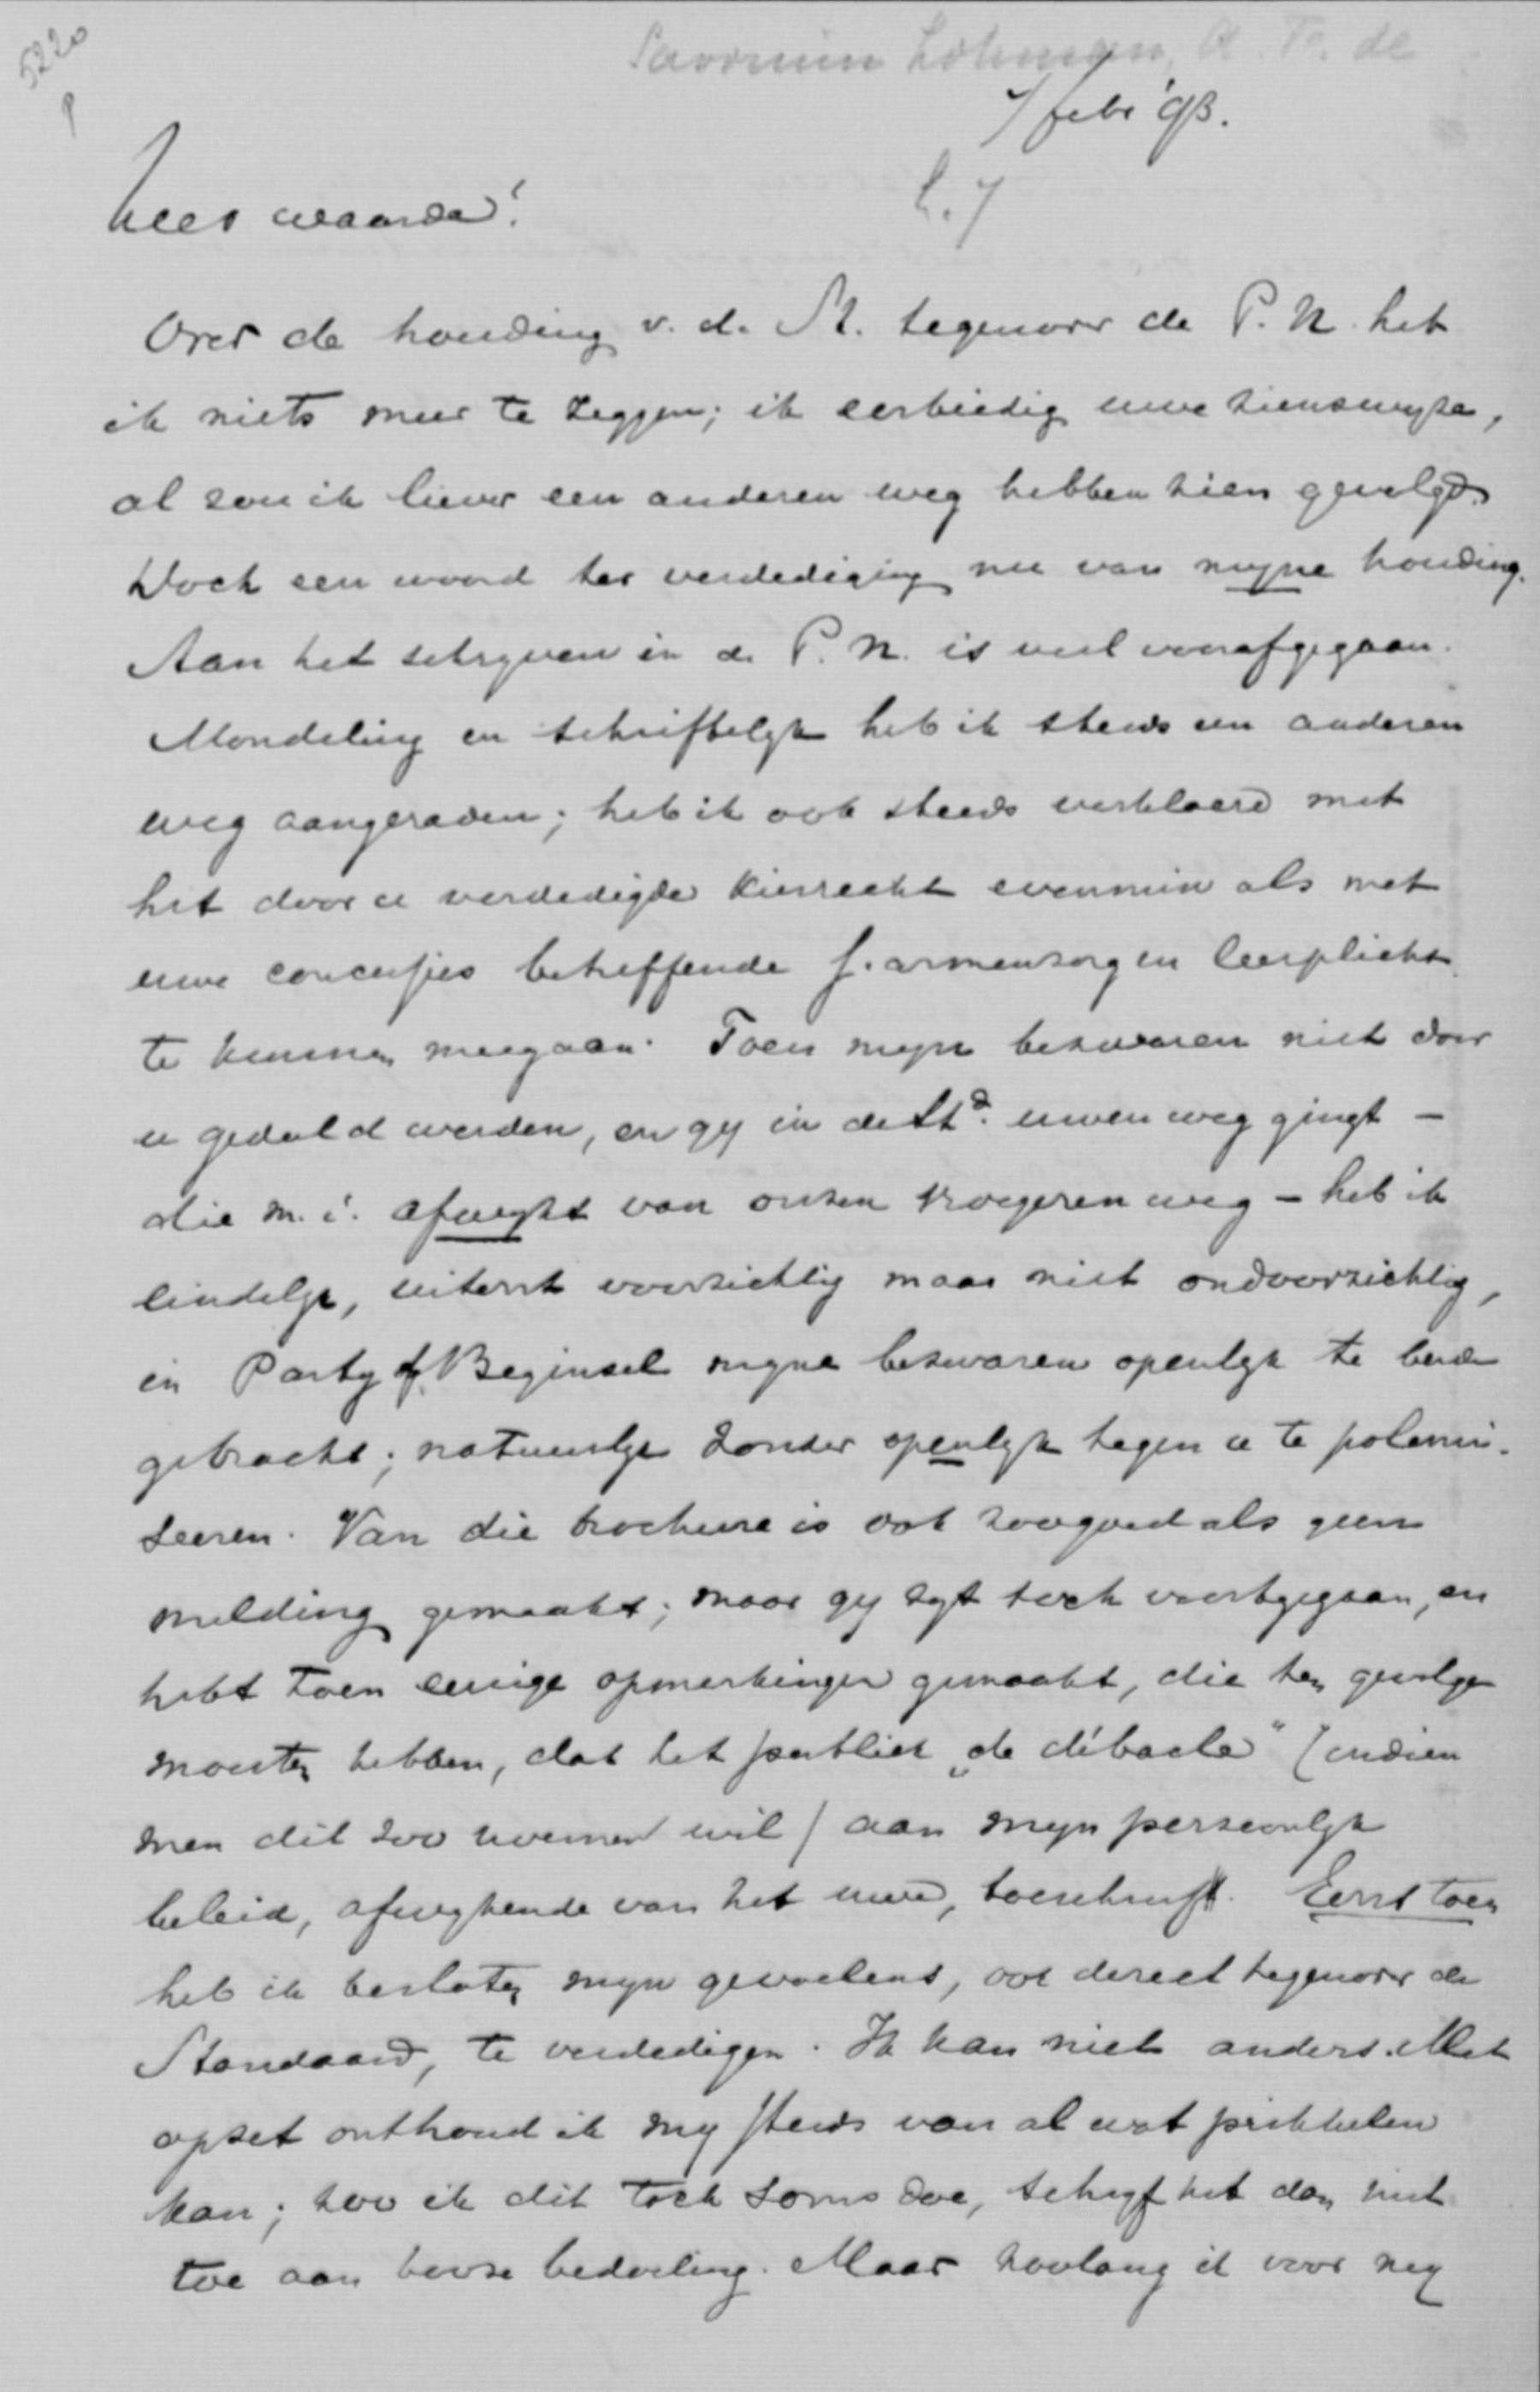 5220
Savornin Lohman, A. F. de
7 febr '93.
L. 7
Zeer waarde!
Over de houding v. d. St. tegenover de P. N. heb
ik niets meer te zeggen; ik eerbiedig uwe zienswyze,
al zou ik liever een anderen weg hebben zien gevolgd.
Doch een woord ter verdediging nu van myne houding.
Aan het schryven in de P. N. is veel voorafgegaan.
Mondeling en schriftelyk heb ik steeds een anderen
weg aangeraden; heb ik ook steeds verklaard met
het door u verdedigde kiesrecht evenmin als met
uwe concepties betreffende armenzorg en leerplicht
te kunnen meegaan. Toen myn bezwaren niet door
u gedeeld werden, en gy in de Std. uwen weg gingt —
die m. i. afwykt van onzen vroegeren weg — heb ik
eindelyk, uiterst voorzichtig maar niet ondoorzichtig,
in Party of Beginsel myne bezwaren openlyk te berde
gebracht; natuurlyk zonder openlyk tegen u te polemi-
seeren. Van die brochure is ook zoogoed als geen
melding gemaakt; maar gy zyt toch voortgegaan, en
hebt toen eenige opmerkingen gemaakt, die ten gevolge
moesten hebben, dat het publiek „de débacle" (indien
men dit zoo noemen wil) aan myn persoonlyk
beleid, afwykende van het uwe, toeschryft. Eerst toen
heb ik besloten myn gevoelens, ook direct tegenover de
Standaard, te verdedigen. Ik kan niet anders. Met
opzet onthoud ik my steeds van al wat prikkelen
kan; zoo ik dit toch soms doe, schryf het dan niet
toe aan booze bedoeling. Maar zoolang ik voor my